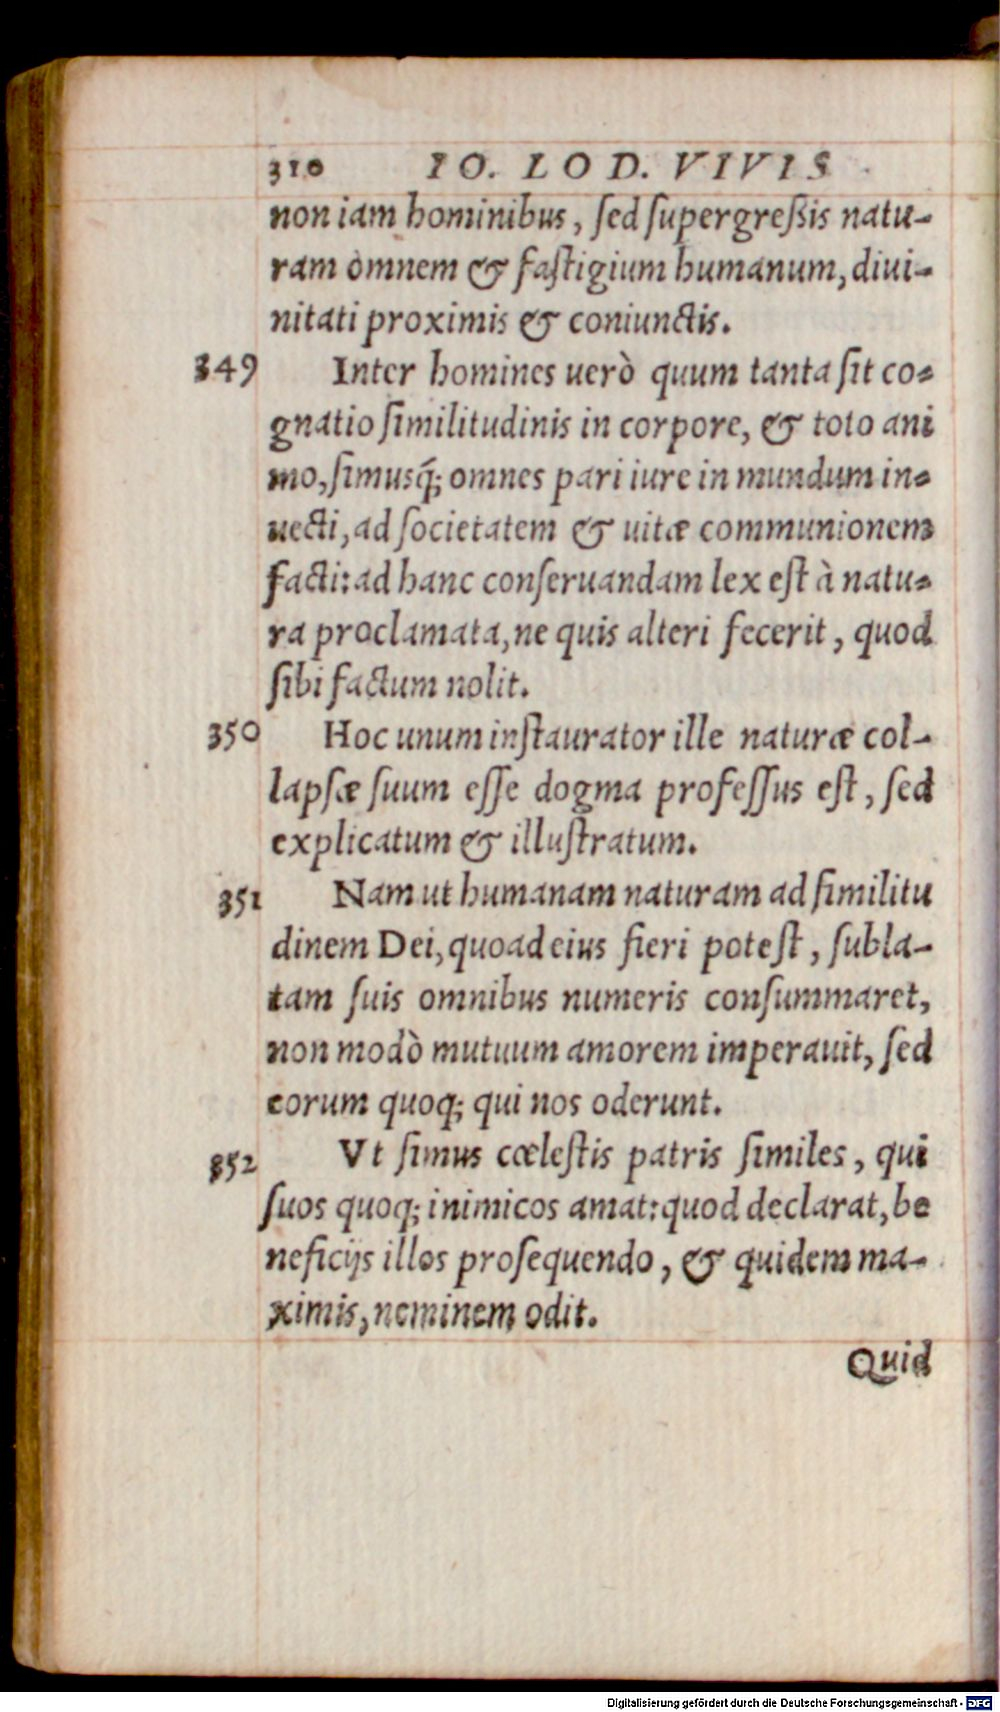 310 IO. LOD. VIVIS
non iam hominibus, ſed ſupergreßis natu-
ram omnem & faſtigium humanum, diui-
nitati proximis & coniunctis.
349 Inter homines uerò quum tanta ſit co-
gnatio ſimilitudinis in corpore, & toto ani
mo, ſimusq́; omnes pari iure in mundum in-
uecti, ad ſocietatem & uitæ communionem
facti: ad hanc conſeruandam lex eſt à natu-
ra proclamata, ne quis alteri fecerit, quod
ſibi factum nolit.
350 Hoc unum inſtaurator ille naturæ col-
lapſæ ſuum eſſe dogma profeſſus eſt, ſed
explicatum & illuſtratum.
351 Nam ut humanam naturam ad ſimilitu
dinem Dei, quoad eius fieri poteſt, ſubla-
tam ſuis omnibus numeris conſummaret,
non modò mutuum amorem imperauit, ſed
eorum quoq; qui nos oderunt.
352 Vt ſimus cœleſtis patris ſimiles, qui
ſuos quoq; inimicos amat: quod declarat, be
neficijs illos proſequendo, & quidem ma-
ximis, neminem odit.
Quid
Digitalisierung gefördert durch die Deutsche Forschungsgemeinschaft - DFG